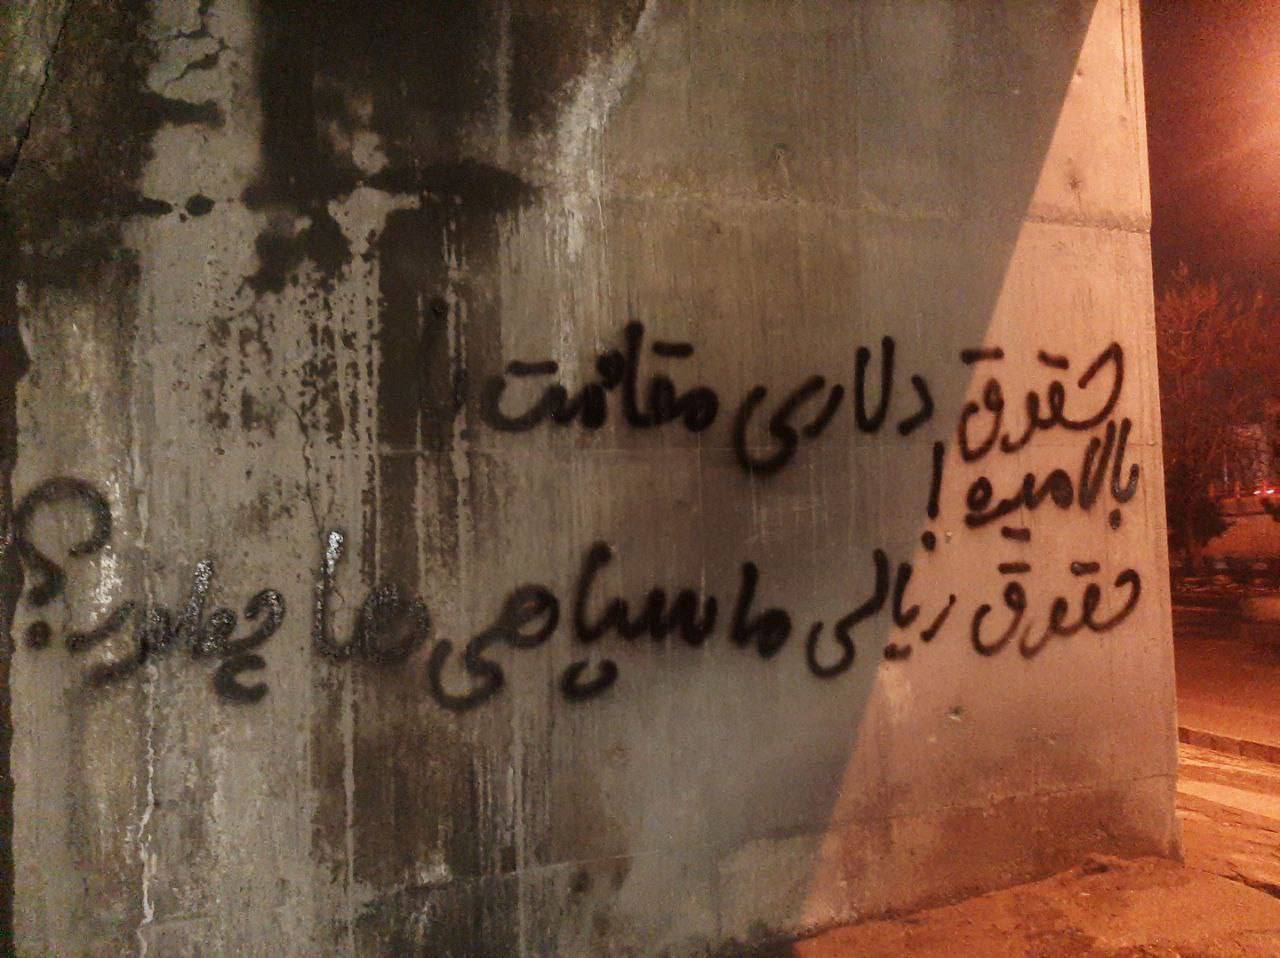 حقوق دلاری مقاومت
بالا میره !
حقوق ریالی ما سپاهی ها چطوره؟